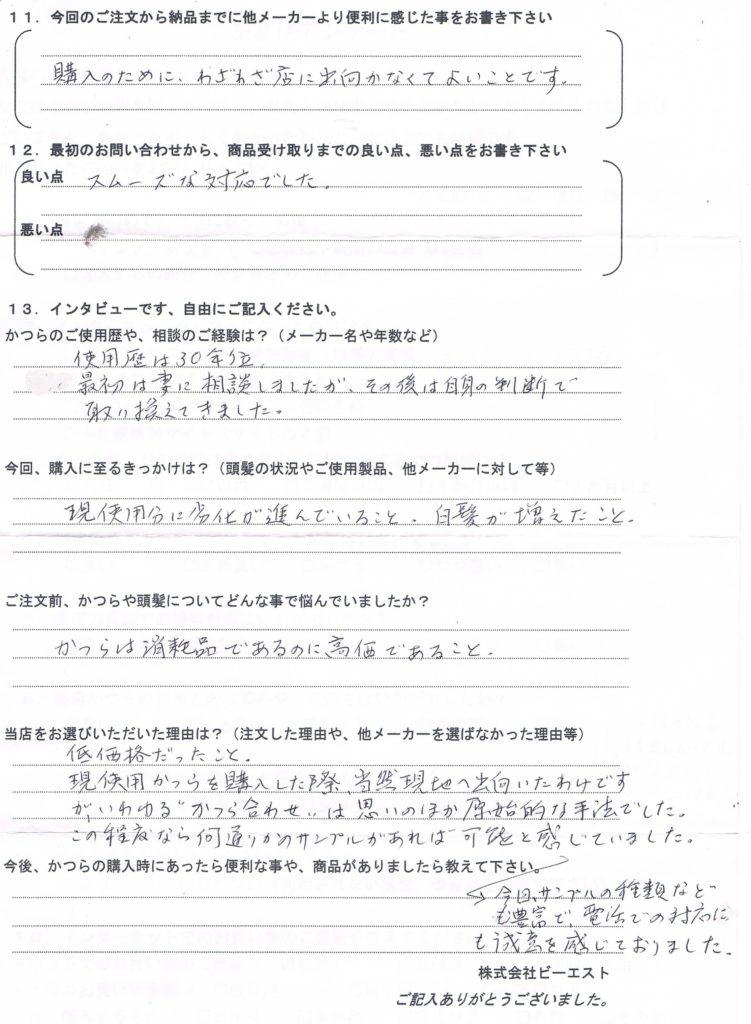 11．今回のご注文から納品までに他メーカーより便利に感じた事をお書き下さい
購入のために、わざわざ店に出向かなくてよいことです。
12．最初のお問い合わせから、商品受け取りまでの良い点、悪い点をお書き下さい
良い点 スムーズな対応でした。
悪い点
13．インタビューです、自由にご記入ください。
かつらのご使用歴や、相談のご経験は？（メーカー名や年数など）
使用歴は30年位、
最初は妻に相談しましたが、その後は自身の判断で
取り換えてきました。
今回、購入に至るきっかけは？（頭髪の状況やご使用製品、他メーカーに対して等）
現使用分に劣化が進んでいること、白髪が増えたこと。
ご注文前、かつらや頭髪についてどんな事で悩んでいましたか？
かつらは消耗品であるのに高価であること。
当店をお選びいただいた理由は？（注文した理由や、他メーカーを選ばなかった理由等）
低価格だったこと。
現使用かつらを購入した際、当然現地へ出向いたわけです
が、いわゆる"かつら合わせ"は思いのほか原始的な手法でした。
この程度なら何通りかのサンプルがあれば可能と感じていました。
今後、かつらの購入時にあったら便利な事や、商品がありましたら教えて下さい。
今回、サンプルの種類など
も豊富で、電話での対応に
も誠意を感じておりました。
株式会社ビーエスト
ご記入ありがとうございました。